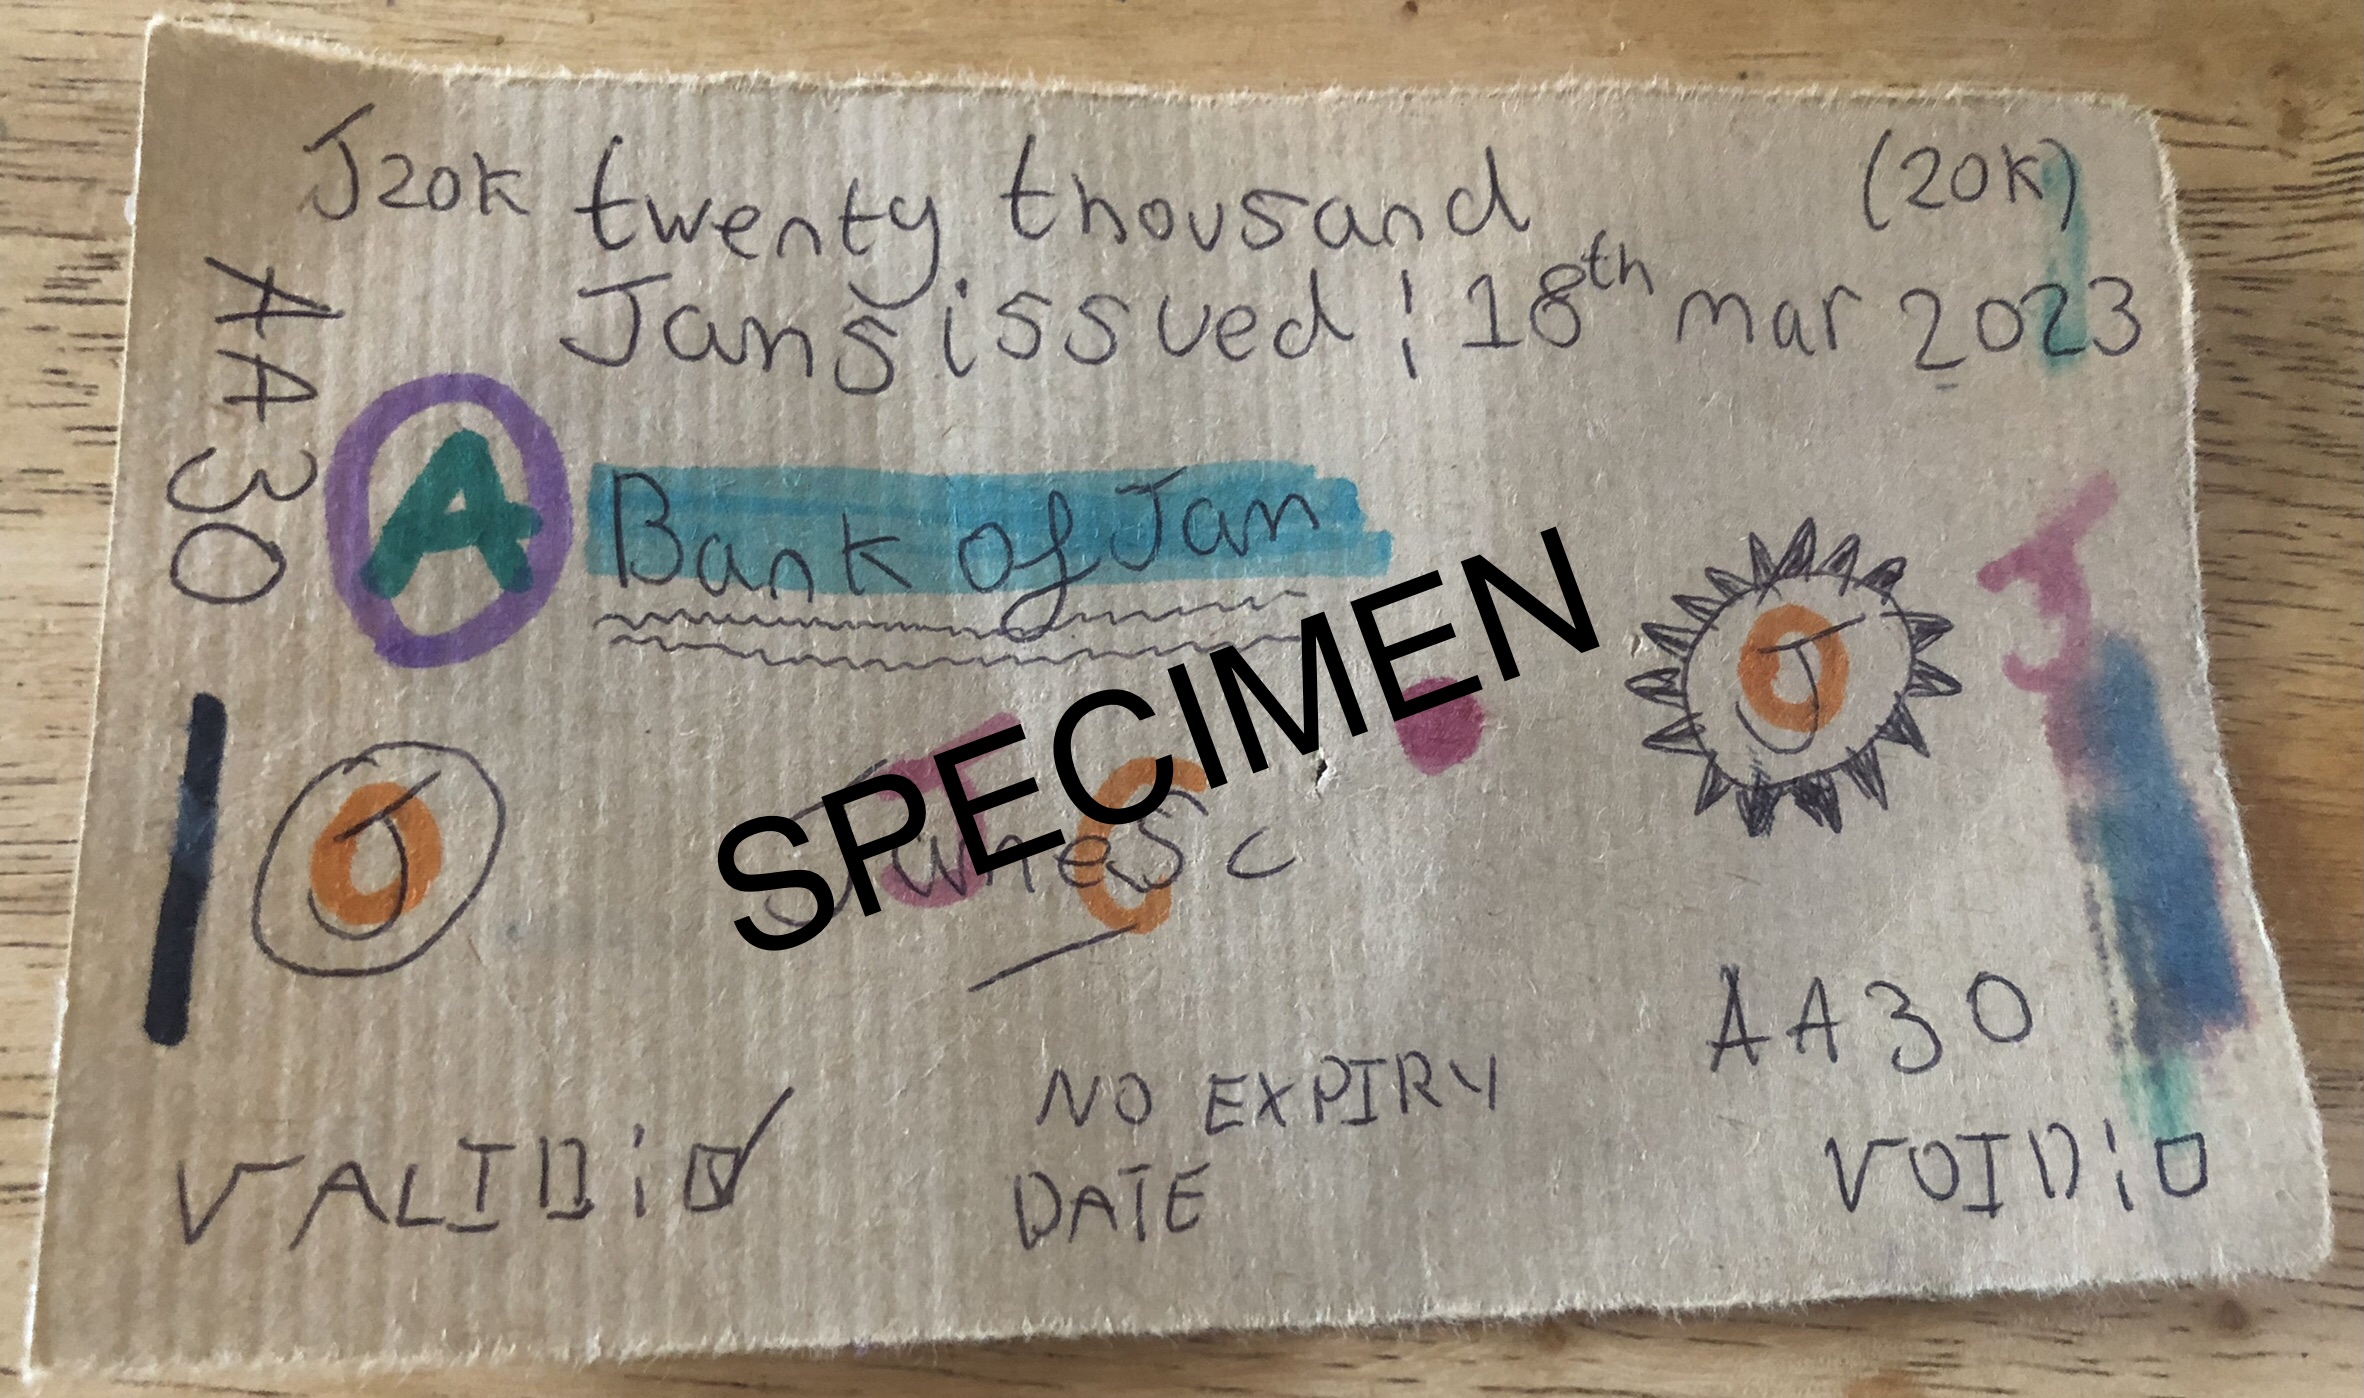 J20K twenty thousand (20K)
Jans issued: 18th mar 2023
AA30
A
Bank of Jan
J
J
J
SPECIMEN
J C
AA30
VALID:
NO EXPIRY
DATE
VOID: